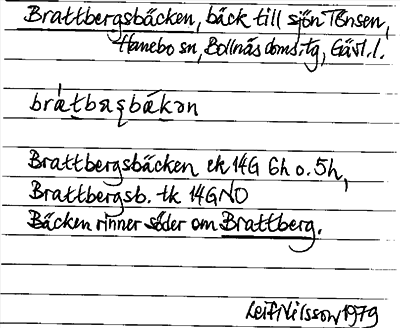 Brattbergsbäcken, bäck till sjön Tensen,
Hanebo sn, Bollnäs doms.tg, Gävl.l.
Brattbergsbäcken ek 14G 6h o. 5h,
Brattbergsb. tk 14GNO
Bäcken rinner söder om Brattberg.
Leif Nilsson 1979